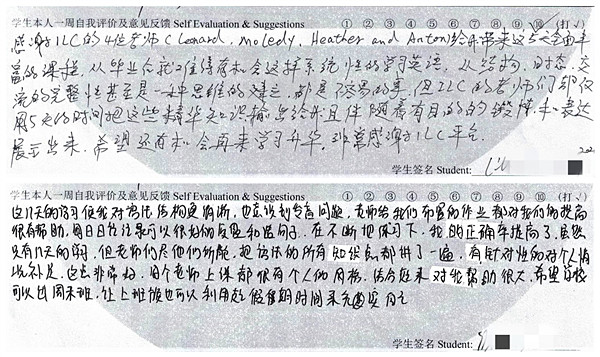 学生本人一周自我评价及意见反馈 Self Evaluation & Suggestions ① ② ③ ④ ⑤ ⑥ ⑦ ⑧ ⑨ ⑩ (打√)
感谢ILC的4位老师(Leonard, Moledy, Heather and Anton)给我带来这些全面丰
富的课程, 从毕业后就难得有机会这样系统性的学习英语, 从结构, 时态, 交
流的完整性甚至是一种思维的建立, 都是不容易的事, 但ILC的老师们却仅
用5天的时间把这些精华知识输出给我且伴随着有目的的锻炼和表达
展示出来. 希望还有机会再来学习升华. 非常感谢ILC平台.
学生签名 Student:
学生本人一周自我评价及意见反馈 Self Evaluation & Suggestions ① ② ③ ④ ⑤ ⑥ ⑦ ⑧ ⑨ ⑩ (打√)
这几天的学习使我对语法结构更清晰, 也意识到发音问题, 老师给我们布置的作业都对我们的提高
很有帮助, 每日日记效果可以很好的反复和造句子. 在不断地练习下, 我的正确率提高了, 虽然
只有几天的学习, 但老师们尽他们所能, 把语法的所有知识点都讲了一遍, 有针对性的对个人情
况, 这点非常好, 四个老师上课都很有个人的风格, 结合起来对我帮助很大, 希望学校
可以出周末班, 让上班族也可以利用起假期时间来充实自己
学生签名 Student: